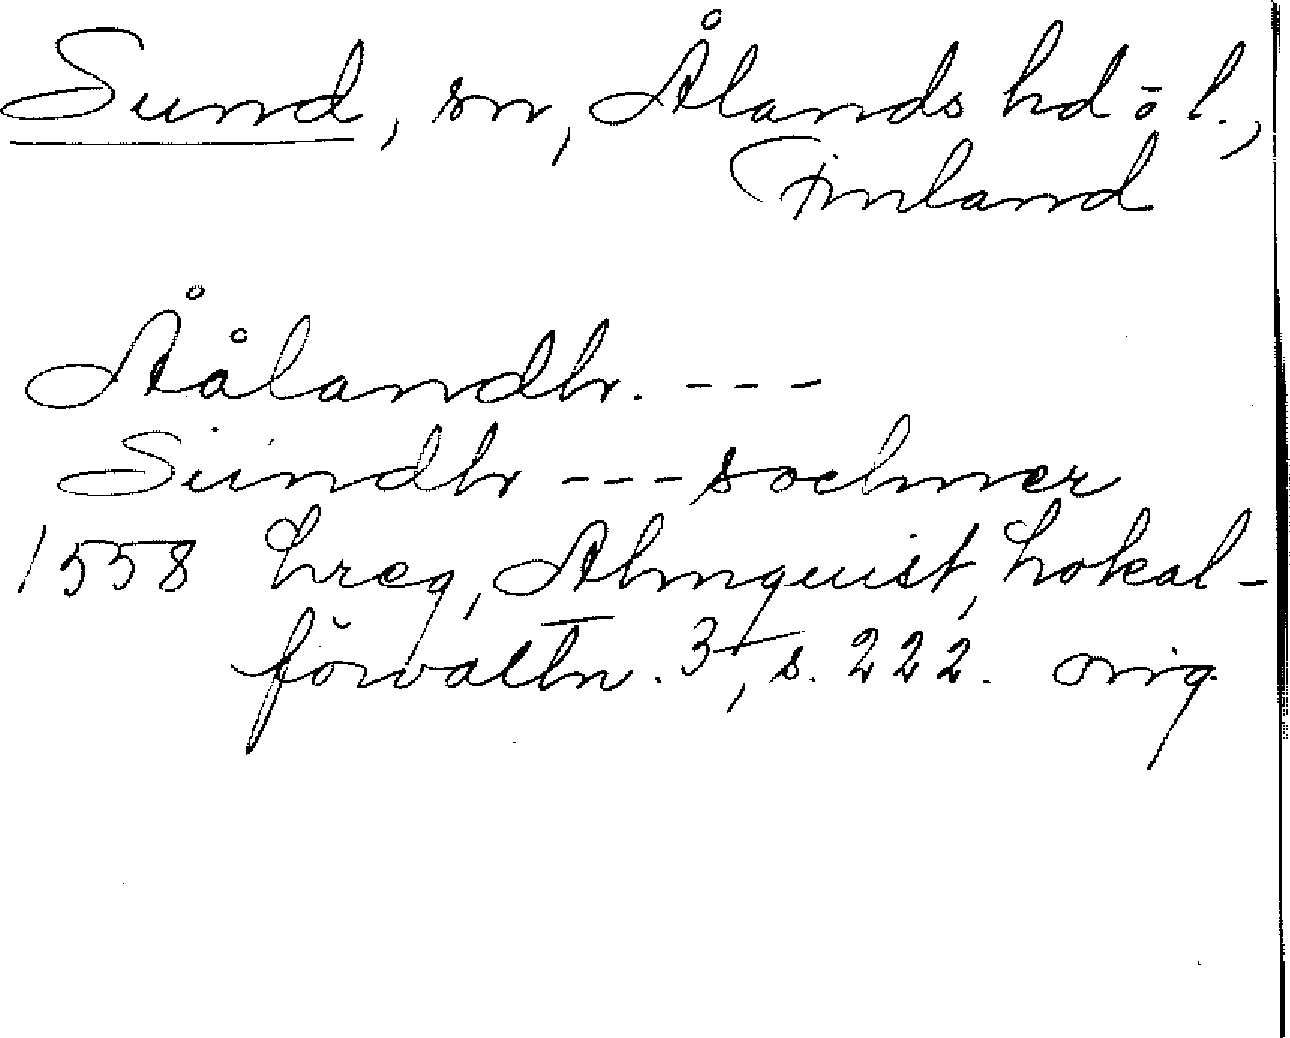 Sund, sn, Ålands hd o l.,
Finland
Åålandh. ---
Sündh --- sochner
1558 hreg, Almquist, Lokal-
förvaltn. 3, s. 222. orig.